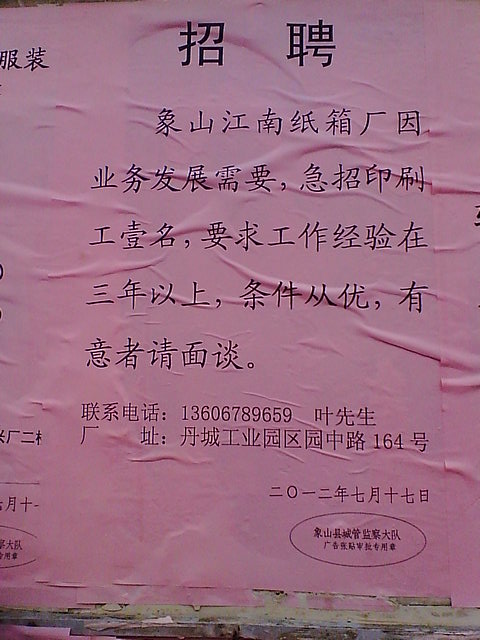 招 聘
服装
象山江南纸箱厂因
业务发展需要，急招印刷
工壹名，要求工作经验在
三年以上，条件从优，有
意者请面谈。
联系电话：13606789659 叶先生
厂 址：丹城工业园区园中路164号
二〇一二年七月十七日
象山县城管监察大队
广告张贴审批专用章
厂二
月十
察大队
专用章